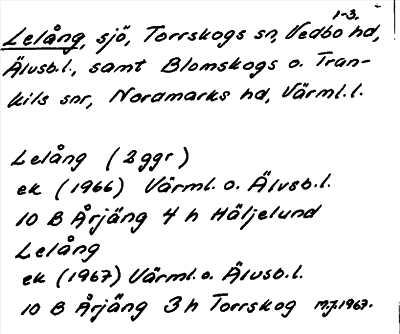 1-3.
Lelång, sjö, Torrskogs sn, Vedbo hd,
Älvsb.l., samt Blomskogs o. Tran-
kils snr, Nordmarks hd, Värml.l.
Lelång (2 ggr)
ek (1966) Värml. o. Älvsb.l.
10 B Årjäng 4 h Häljelund
Lelång
ek (1967) Värml. o. Älvsb.l.
10 B Årjäng 3 h Torrskog M.J. 1967.